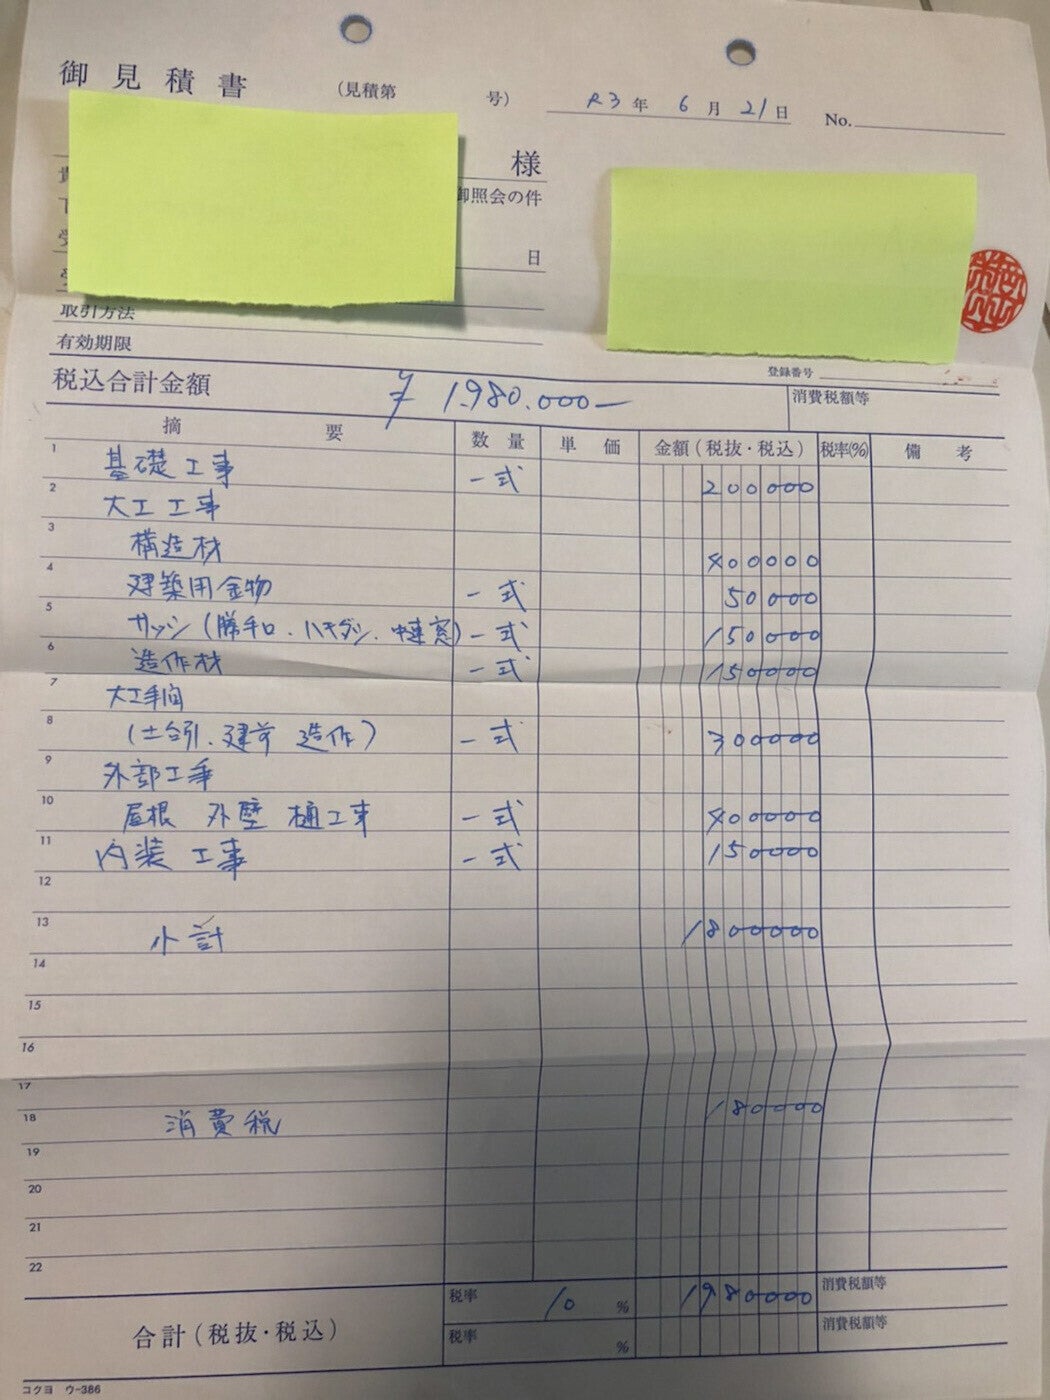 御見積書 (見積第 号) R3年 6月 21日 No.
様
御照会の件
日
取引方法
有効期限
登録番号
税込合計金額 ¥1,980,000– 消費税額等
摘要 数量 単価 金額(税抜・税込) 税率(%) 備考
1 基礎工事 一式 200000
2 大工工事
3 構造材 400000
4 建築用金物 一式 50000
5 サッシ(勝手口.ハキダシ.中連窓) 一式 150000
6 造作材 一式 150000
7 大工手間
8 (土台引.建前 造作) 一式 300000
9 外部工事
10 屋根 外壁 樋工事 一式 400000
11 内装工事 一式 150000
12
13 小計 1800000
14
15
16
17
18 消費税 180000
19
20
21
22
合計(税抜・税込) 税率 10 % 1980000 消費税額等
税率 % 消費税額等
コクヨ ウ-386